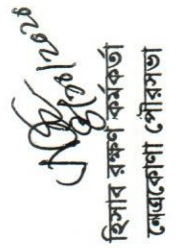 হিসাব রক্ষণ কর্মকর্তা
নেত্রকোণা পৌরসভা